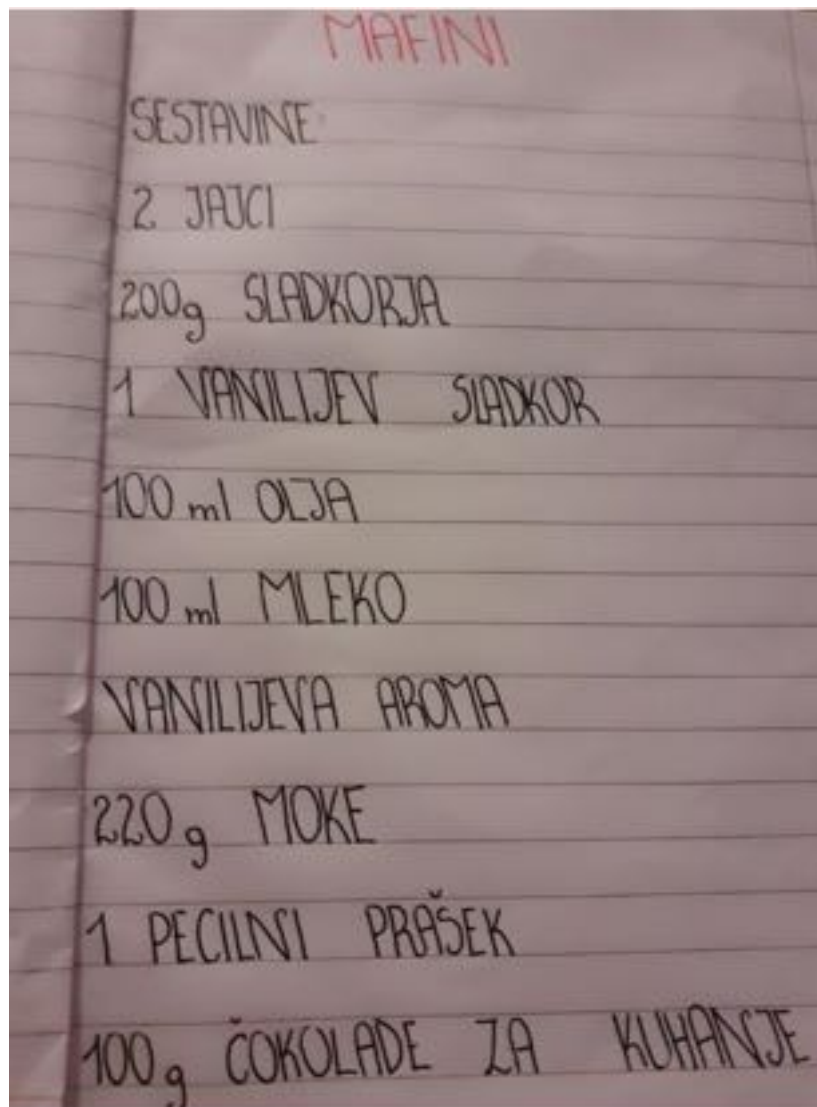 MAFINI
SESTAVINE:
2 JAJCI
200g SLADKORJA
1 VANILIJEV SLADKOR
100 ml OLJA
100 ml MLEKO
VANILIJEVA AROMA
220 g MOKE
1 PECILNI PRAŠEK
100 g ČOKOLADE ZA KUHANJE